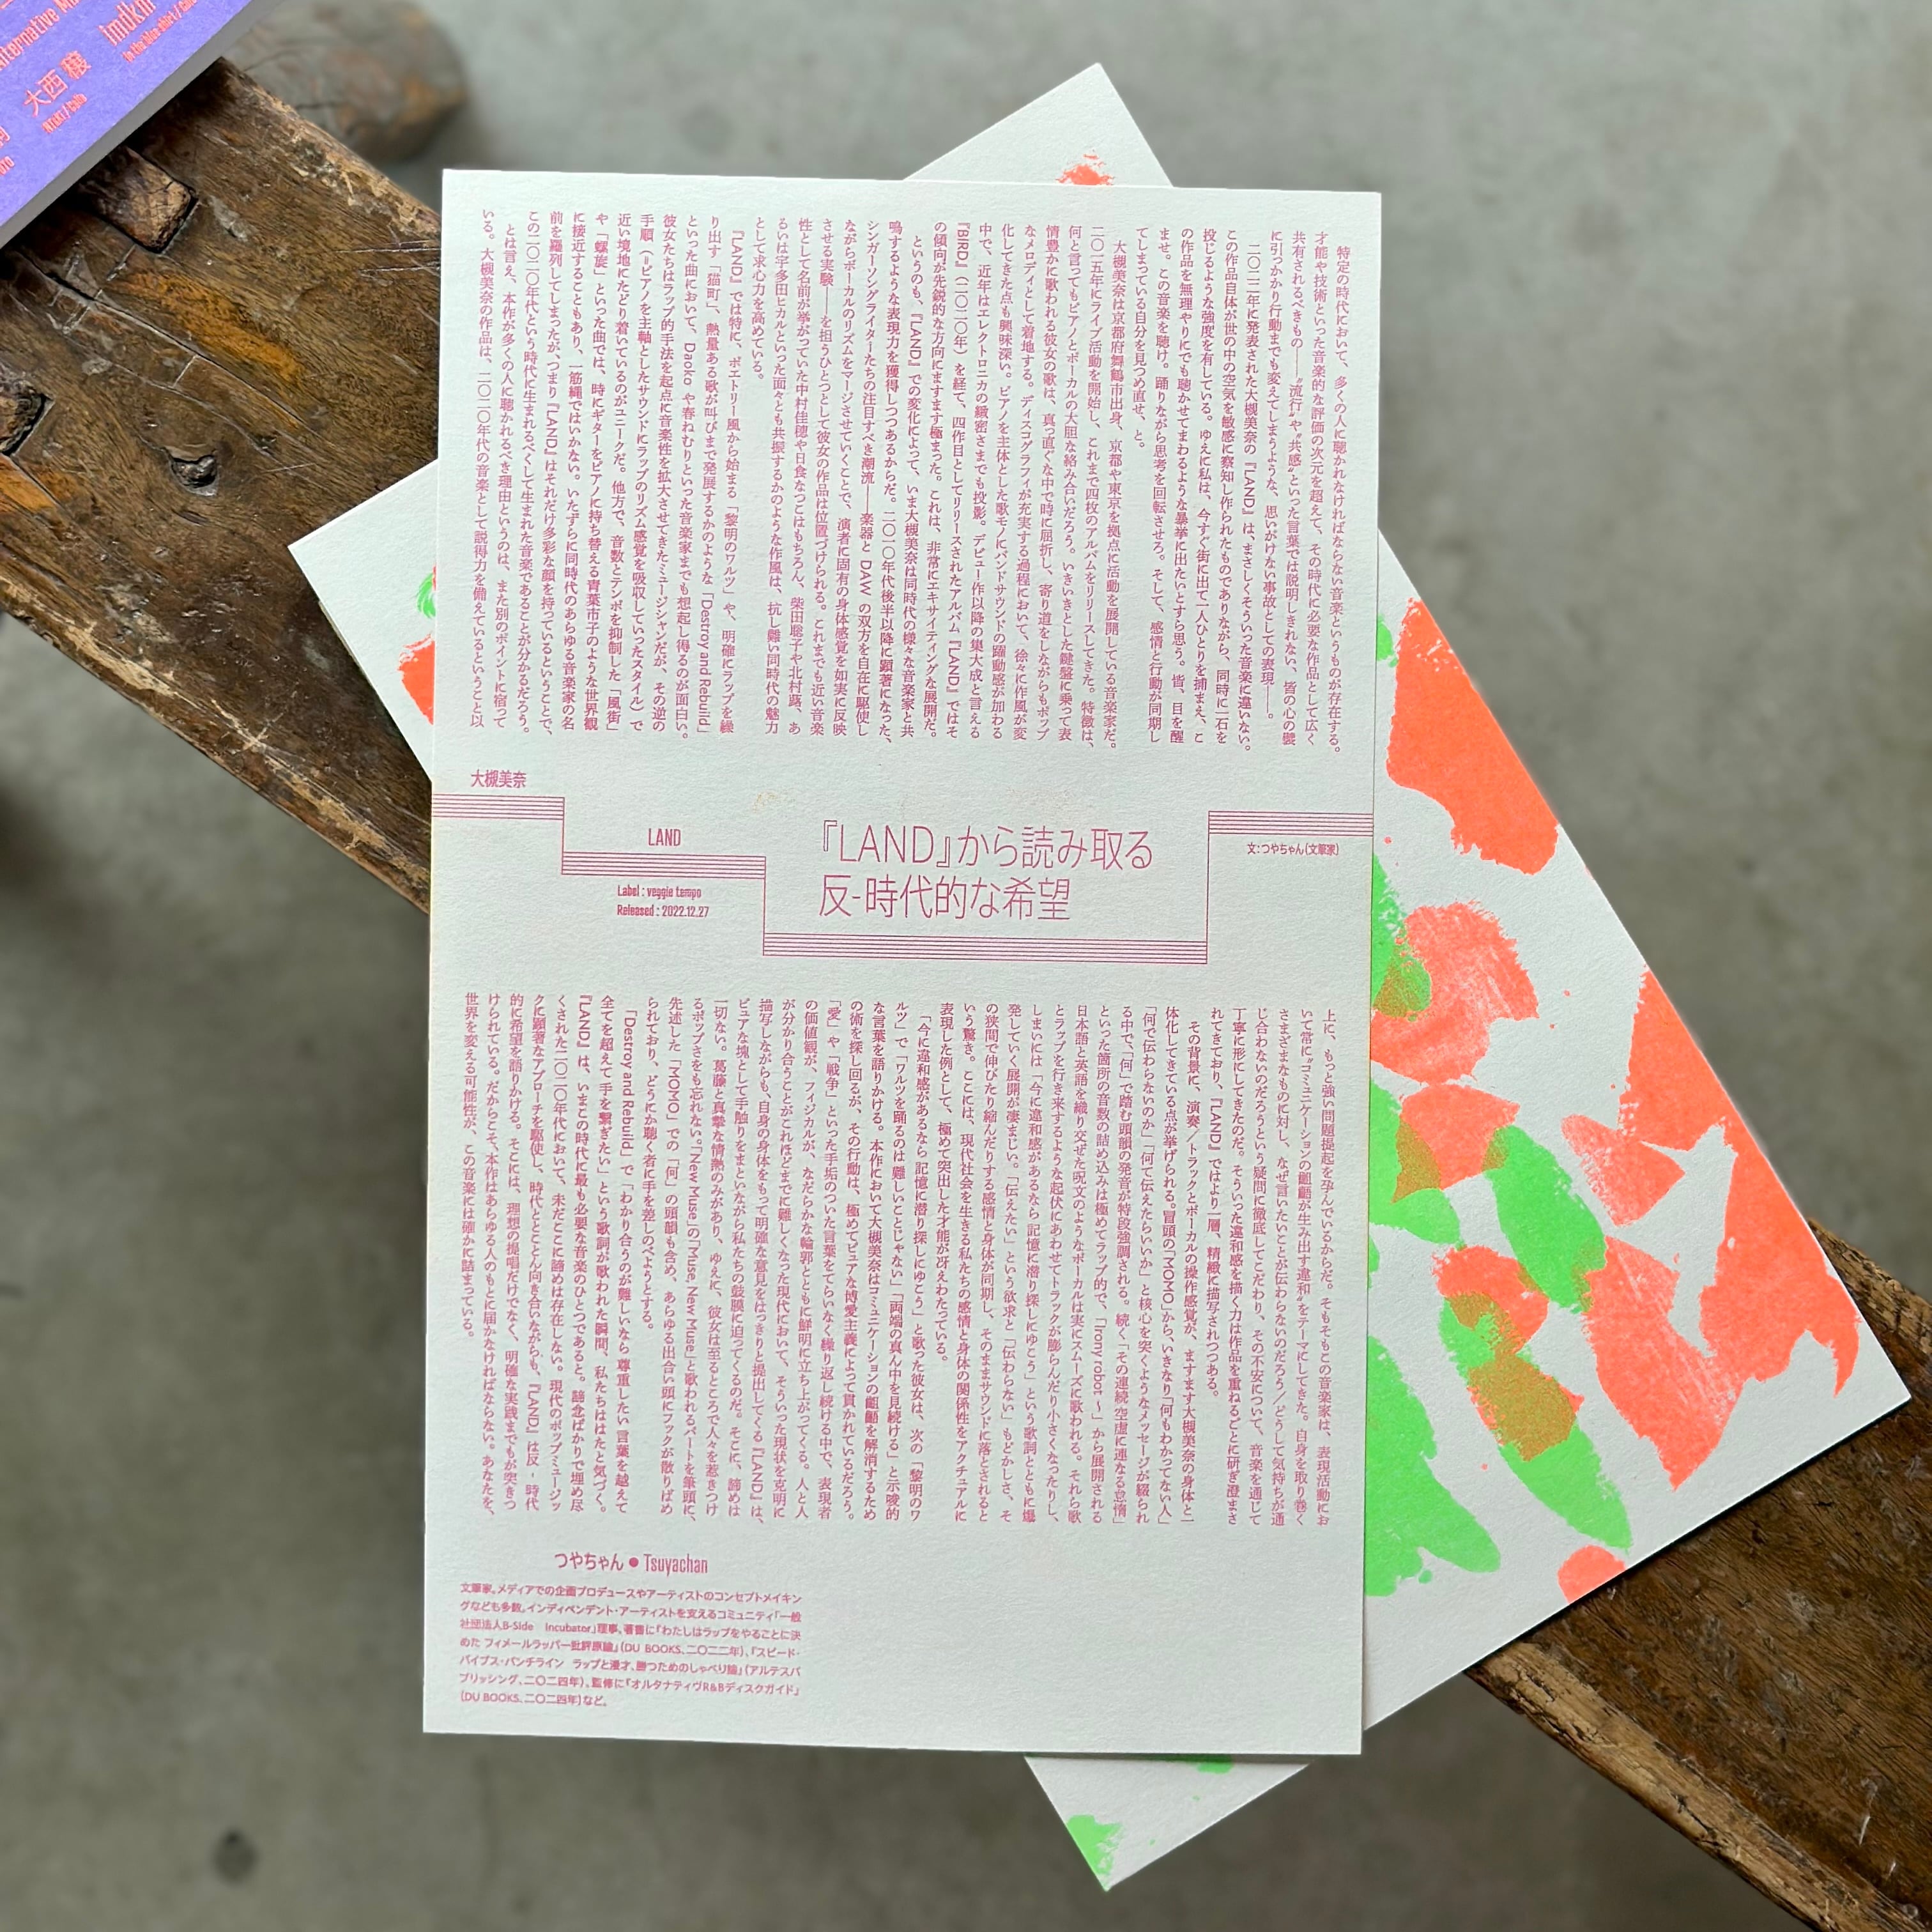 Alternative M
imdkm
大西 穣
特定の時代において、多くの人に聴かれなければならない音楽というものが存在する。
才能や技術といった音楽的な評価の次元を超えて、その時代に必要な作品として広く
共有されるべきもの――“流行”や“共感”といった言葉では説明しきれない、皆の心の襞
に引っかかり行動までも変えてしまうような、思いがけない事故としての表現――。
二〇二二年に発表された大槻美奈の『LAND』は、まさしくそういった音楽に違いない。
この作品自体が世の中の空気を敏感に察知し作られたものでありながら、同時に一石を
投じるような強度を有している。ゆえに私は、今すぐ街に出て一人ひとりを捕まえ、こ
の作品を無理やりにでも聴かせてまわるような暴挙に出たいとすら思う。皆、目を醒
ませ。この音楽を聴け。踊りながら思考を回転させろ。そして、感情と行動が同期し
てしまっている自分を見つめ直せ、と。
大槻美奈は京都府舞鶴市出身、京都や東京を拠点に活動を展開している音楽家だ。
二〇一五年にライブ活動を開始し、これまで四枚のアルバムをリリースしてきた。特徴は、
何と言ってもピアノとボーカルの大胆な絡み合いだろう。いきいきとした鍵盤に乗って表
情豊かに歌われる彼女の歌は、真っ直ぐな中で時に屈折し、寄り道をしながらもポップ
なメロディとして着地する。ディスコグラフィが充実する過程において、徐々に作風が変
化してきた点も興味深い。ピアノを主体とした歌モノにバンドサウンドの躍動感が加わる
中で、近年はエレクトロニカの緻密さまでも投影。デビュー作以降の集大成と言える
『BIRD』（二〇二〇年）を経て、四作目としてリリースされたアルバム『LAND』ではそ
の傾向が先鋭的な方向にますます極まった。これは、非常にエキサイティングな展開だ。
というのも、『LAND』での変化によって、いま大槻美奈は同時代の様々な音楽家と共
鳴するような表現力を獲得しつつあるからだ。二〇一〇年代後半以降に顕著になった、
シンガーソングライターたちの注目すべき潮流――楽器と DAW の双方を自在に駆使し
ながらボーカルのリズムをマージさせていくことで、演者に固有の身体感覚を如実に反映
させる実験――を担うひとつとして彼女の作品は位置づけられる。これまでも近い音楽
性として名前が挙がっていた中村佳穂や日食なつこはもちろん、柴田聡子や北村蕗、あ
るいは宇多田ヒカルといった面々とも共振するかのような作風は、抗し難い同時代の魅力
として求心力を高めている。
『LAND』では特に、ポエトリー風から始まる「黎明のワルツ」や、明確にラップを繰
り出す「猫町」、熱量ある歌が叫びまで発展するかのような「Destroy and Rebuild」
といった曲において、Daoko や春ねむりといった音楽家までも想起し得るのが面白い。
彼女たちはラップ的手法を起点に音楽性を拡大させてきたミュージシャンだが、その逆の
手順（＝ピアノを主軸としたサウンドにラップのリズム感覚を吸収していったスタイル）で
近い境地にたどり着いているのがユニークだ。他方で、音数とテンポを抑制した「風街」
や「螺旋」といった曲では、時にギターをピアノに持ち替える青葉市子のような世界観
に接近することもあり、一筋縄ではいかない。いたずらに同時代のあらゆる音楽家の名
前を羅列してしまったが、つまり『LAND』はそれだけ多彩な顔を持っているということで、
この二〇二〇年代という時代に生まれるべくして生まれた音楽であることが分かるだろう。
とは言え、本作が多くの人に聴かれるべき理由というのは、また別のポイントに宿って
いる。大槻美奈の作品は、二〇二〇年代の音楽として説得力を備えているということ以
大槻美奈
LAND
Label : veggie tempo
Released : 2022.12.27
『LAND』から読み取る
反-時代的な希望
文：つやちゃん（文筆家）
上に、もっと強い問題提起を孕んでいるからだ。そもそもこの音楽家は、表現活動にお
いて常に“コミュニケーションの齟齬が生み出す違和”をテーマにしてきた。自身を取り巻く
さまざまなものに対し、なぜ言いたいことが伝わらないのだろう／どうして気持ちが通
じ合わないのだろうという疑問に徹底してこだわり、その不安について、音楽を通じて
丁寧に形にしてきたのだ。そういった違和感を描く力は作品を重ねるごとに研ぎ澄まさ
れてきており、『LAND』ではより一層、精緻に描写されつつある。
その背景に、演奏／トラックとボーカルの操作感覚が、ますます大槻美奈の身体と一
体化してきている点が挙げられる。冒頭の「MOMO」から、いきなり「何もわかってない人」
「何で伝わらないのか」「何て伝えたらいいか」と核心を突くようなメッセージが綴られ
る中で、「何」で踏む頭韻の発音が特段強調される。続く「その連続 空虚に連なる怠惰」
といった箇所の音数の詰め込みは極めてラップ的で、「Irony robot ～」から展開される
日本語と英語を織り交ぜた呪文のようなボーカルは実にスムーズに歌われる。それら歌
とラップを行き来するような起伏にあわせてトラックが膨らんだり小さくなったりし、
しまいには「今に違和感があるなら 記憶に潜り探しにゆこう」という歌詞とともに爆
発していく展開が凄まじい。「伝えたい」という欲求と「伝わらない」もどかしさ、そ
の狭間で伸びたり縮んだりする感情と身体が同期し、そのままサウンドに落とされると
いう驚き。ここには、現代社会を生きる私たちの感情と身体の関係性をアクチュアルに
表現した例として、極めて突出した才能が冴えわたっている。
「今に違和感があるなら 記憶に潜り探しにゆこう」と歌った彼女は、次の「黎明のワ
ルツ」で「ワルツを踊るのは 難しいことじゃない」「両端の真ん中を見続ける」と示唆的
な言葉を語りかける。本作において大槻美奈はコミュニケーションの齟齬を解消するため
の術を探し回るが、その行動は、極めてピュアな博愛主義によって貫かれているだろう。
「愛」や「戦争」といった手垢のついた言葉をてらいなく繰り返し続ける中で、表現者
の価値観が、フィジカルが、なだらかな輪郭とともに鮮明に立ち上がってくる。人と人
が分かり合うことがこれほどまでに難しくなった現代において、そういった現状を克明に
描写しながらも、自身の身体をもって明確な意見をはっきりと提出してくる『LAND』は、
ピュアな塊として手触りをまといながら私たちの鼓膜に迫ってくるのだ。そこに、諦めは
一切ない。葛藤と真摯な情熱のみがあり、ゆえに、彼女は至るところで人々を惹きつけ
るポップさをも忘れない。「New Muse」の「Muse, New Muse」と歌われるパートを筆頭に、
先述した「MOMO」での「何」の頭韻も含め、あらゆる出合い頭にフックが散りばめ
られており、どうにか聴く者に手を差しのべようとする。
「Destroy and Rebuild」で「わかり合うのが難しいなら 尊重したい 言葉を越えて
全てを超えて 手を繋ぎたい」という歌詞が歌われた瞬間、私たちははたと気づく。
『LAND』は、いまこの時代に最も必要な音楽のひとつであると。諦念ばかりで埋め尽
くされた二〇二〇年代において、未だどこに諦めは存在しない。現代のポップミュージッ
クに顕著なアプローチを駆使し、時代ととことん向き合いながらも、『LAND』は反 - 時代
的に希望を語りかける。そこには、理想の提唱だけでなく、明確な実践までもが突きつ
けられている。だからこそ、本作はあらゆる人のもとに届かなければならない。あなたを、
世界を変える可能性が、この音楽には確かに詰まっている。
つやちゃん ● Tsuyachan
文筆家。メディアでの企画プロデュースやアーティストのコンセプトメイキン
グなども多数。インディペンデント・アーティストを支えるコミュニティ「一般
社団法人B-Side Incubator」理事。著書に『わたしはラップをやることに決
めた フィメールラッパー批評原論』（DU BOOKS、二〇二二年）、『スピード・
バイブス・パンチライン ラップと漫才、勝つためのしゃべり論』（アルテスパ
ブリッシング、二〇二四年）、監修に『オルタナティヴR&Bディスクガイド』
（DU BOOKS、二〇二四年）など。